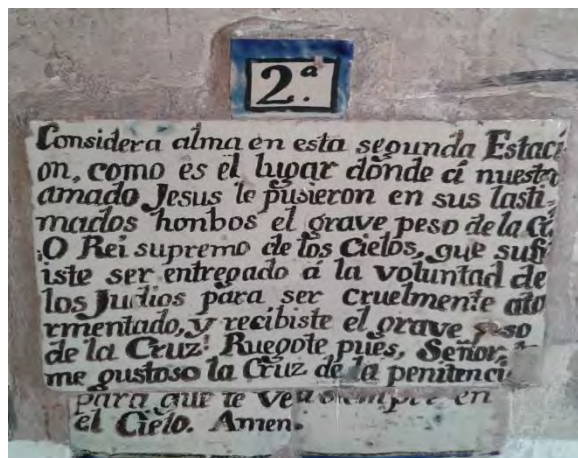 2.ª
Considera alma en esta segunda Estaci
on, como es el lugar dónde á nuestro
amado Jesus le pusieron en sus lasti-
mados honbos el grave peso de la
¡O Rei supremo de los Cielos, que sufr
iste ser entregado á la voluntad de
los Judios para ser cruelmente ato
rmentado, y recibiste el grave peso
de la Cruz! Ruegote pues, Señor,
me gustoso la Cruz de la penitenci
para que te vea siempre en
el Cielo. Amen.